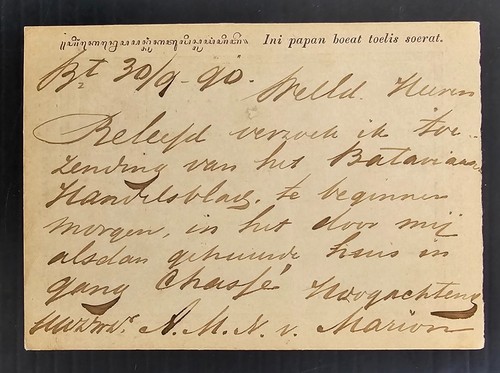 Ini papan boeat toelis soerat.
Bt 30/9-90.
Welld. Heeren
Beleefd verzoek ik toe-
zending van het Bataviaasch
Handelsblad, te beginnen
morgen, in het door mij
alsdan gehuurde huis in
gang Chassé Hoogachtend
A. M. N. v. Marion